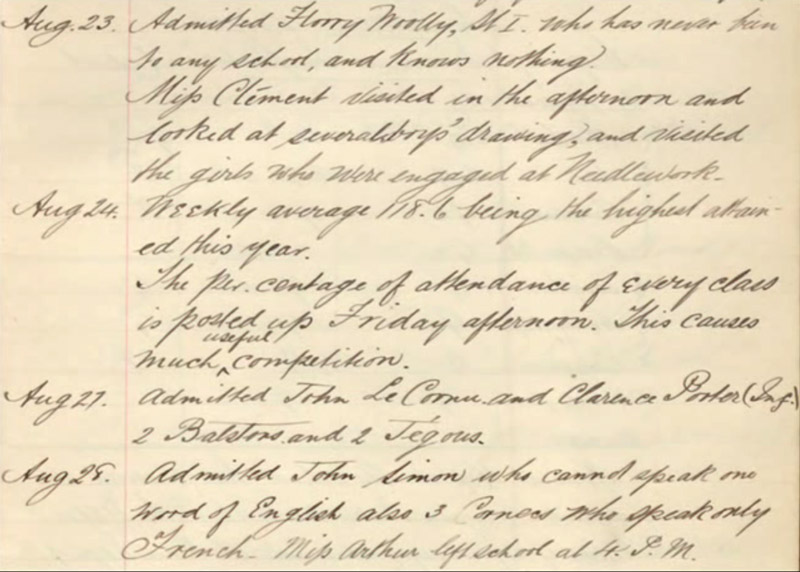 Aug. 23. Admitted Florry Woolly, St I. who has never been
to any school, and knows nothing.
Miss Clément visited in the afternoon and
looked at several boys' drawing, and visited
the girls who were engaged at Needlework.
Aug 24. Weekly average 118.6 being the highest attain-
ed this year.
The per. centage of attendance of every class
is posted up Friday afternoon. This causes
much useful competition.
Aug 27. Admitted John Le Cornu and Clarence Porter (Inf.)
2 Balstons and 2 Tégous.
Aug 28. Admitted John Simon who cannot speak one
word of English also 3 who speak only
French. Miss Arthur left school at 4. P.M.